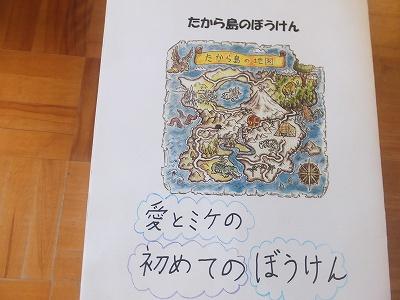 たから島のぼうけん
たから島の地図
愛とミケの
初めてのぼうけん